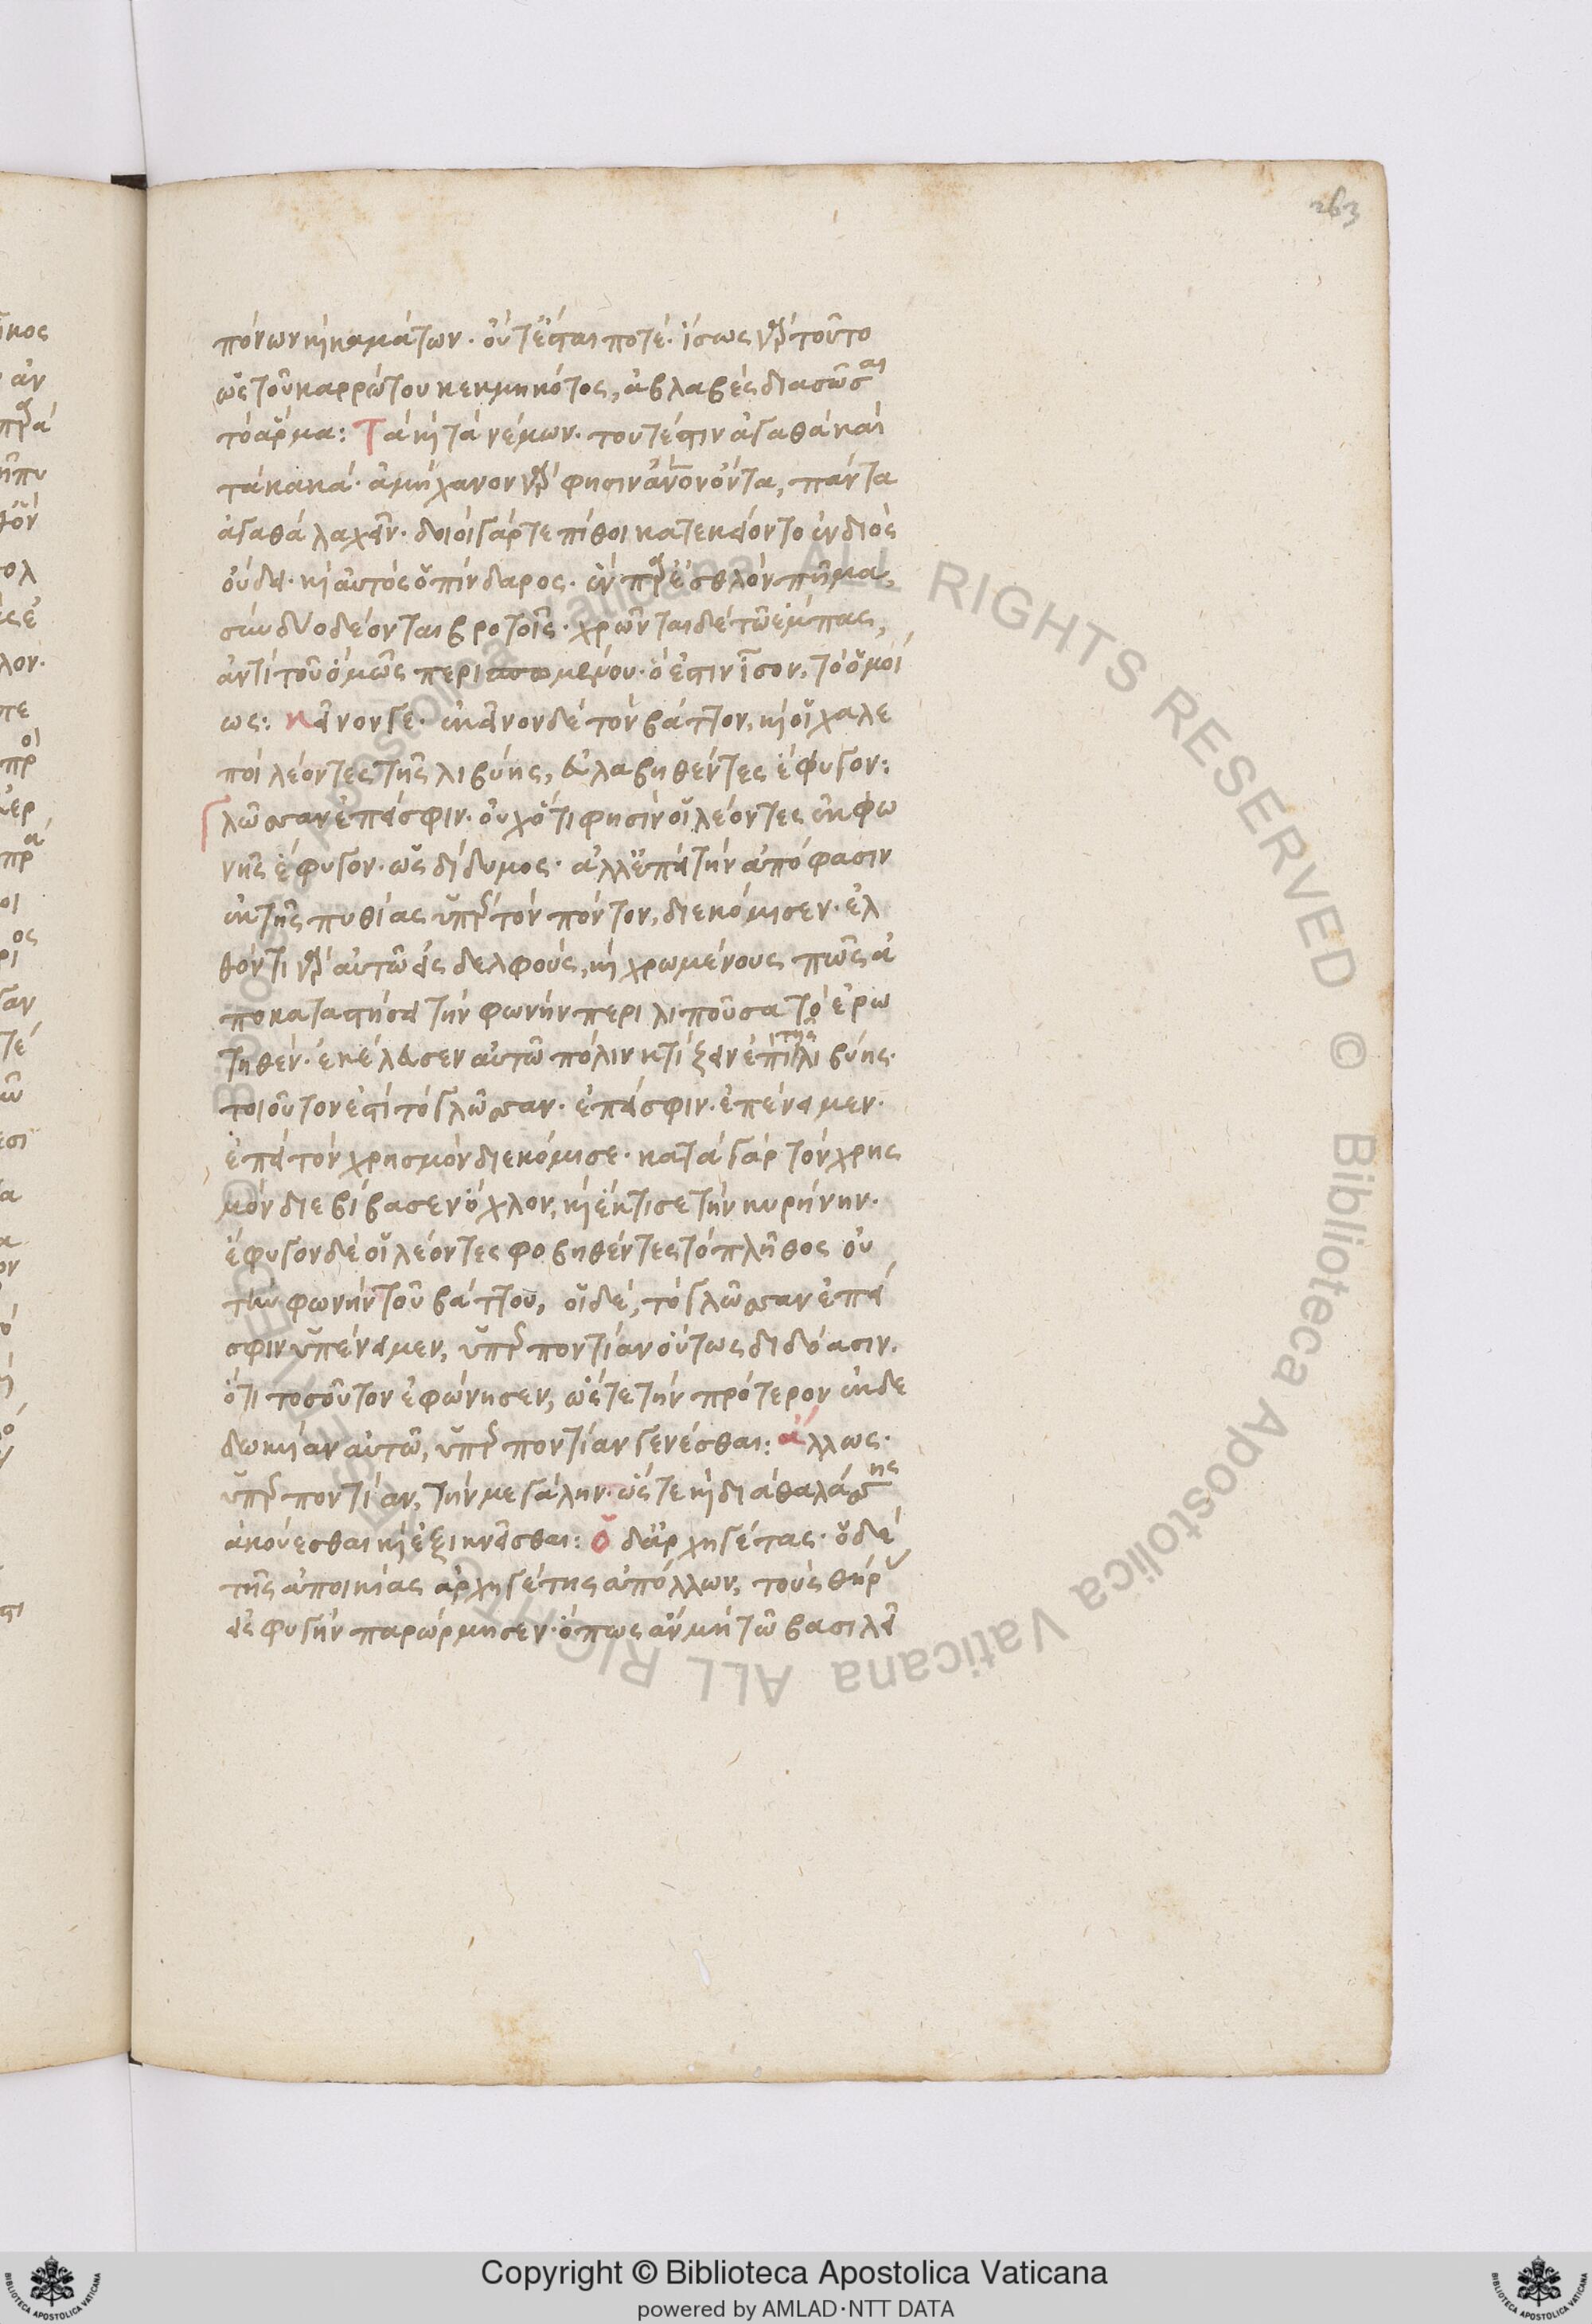 263
πόνων κὶ καμάτων· οὔτ ἔσται ποτέ· ἴσως γὰρ τοῦτο
ὡς τοῦ καρρώτου κεκμηκότος, ἀβλαβὲς διασῶσαι
τὸ ἅρμα: Τὰ κὶ τὰ νέμων· τουτέστιν ἀγαθὰ καὶ
τὰ κακά· ἀμήχανον γάρ φησιν ἄνον ὄντα, πάντα
ἀγαθὰ λαχεῖν· δοιοὶ γάρ τε πίθοι κατεκείοντο ἐν διὸς
οὔδει· κὶ αὐτὸς ὁ πίνδαρος· ἓν παρ ἐσθλὸν πῆμα,
σύνδυο δέονται βροτοῖς· χρῶνται δὲ τῶ ἔμπας,
ἀντὶ τοῦ ὁμῶς περισπωμένου· ὅ ἐστιν ἶσον, τὸ ὁμοί
ως: κεῖνον γε· ἐκεῖνον δὲ τὸν βάττον, κὶ οἱ χαλε
ποὶ λέοντες τῆς λιβύης, εὐλαβηθέντες ἔφυγον:
Γλῶσσαν ἐπεί σφιν· οὐχ ὅτι φησὶν οἱ λέοντες ἐκ φω
νῆς ἔφυγον· ὡς δίδυμος· ἀλλ ἐπεὶ τὴν ἀπόφασιν
ἐκ τῆς πυθίας ὑπὲρ τὸν πόντον, διεκόμισεν· ἐλ
θόντι γὰρ αὐτῶ εἰς δελφοὺς, κὶ χρωμένους πῶς ἀ
ποκαταστήσει τὴν φωνὴν περιλιποῦσα τὸ ἐρω
τηθὲν· ἐκέλευσεν αὐτῶ πόλιν κτίζειν ἐπὶ τῆς λιβύης·
τοιοῦτον ἐστὶ τὸ γλῶσσαν· ἐπεί σφιν· ἐπένειμεν·
ἐπεὶ τὸν χρησμὸν διεκόμισε· κατὰ γὰρ τὸν χρησ
μὸν διεβίβασεν ὄχλον, κὶ ἔκτισε τὴν κυρήνην·
ἔφυγον δὲ οἱ λέοντες φοβηθέντες τὸ πλῆθος οὐ
τὴν φωνὴν τοῦ βάττου, οἱ δὲ, τὸ γλῶσσαν ἐπεί
σφιν ὑπένειμεν, ὑπερποντίαν οὕτως διδόασιν.
ὅτι τοσοῦτον ἐφώνησεν, ὥστε τὴν πρότερον ἐνδε
δωκυῖαν αὐτῶ, ὑπερποντίαν γενέσθαι: ἄλλως·
ὑπερποντίαν, τὴν μεγάλην· ὥστε κὶ διὰ θαλάσσης
ἀκούεσθαι κὶ ἐξικνεῖσθαι: ὁ δ ἀρχηγέτας· ὁ δὲ
τῆς ἀποικίας ἀρχηγέτης ἀπόλλων, τοὺς θῆρ
εἰς φυγὴν παρώρμησεν· ὅπως ἂν μὴ τῶ βασιλεῖ